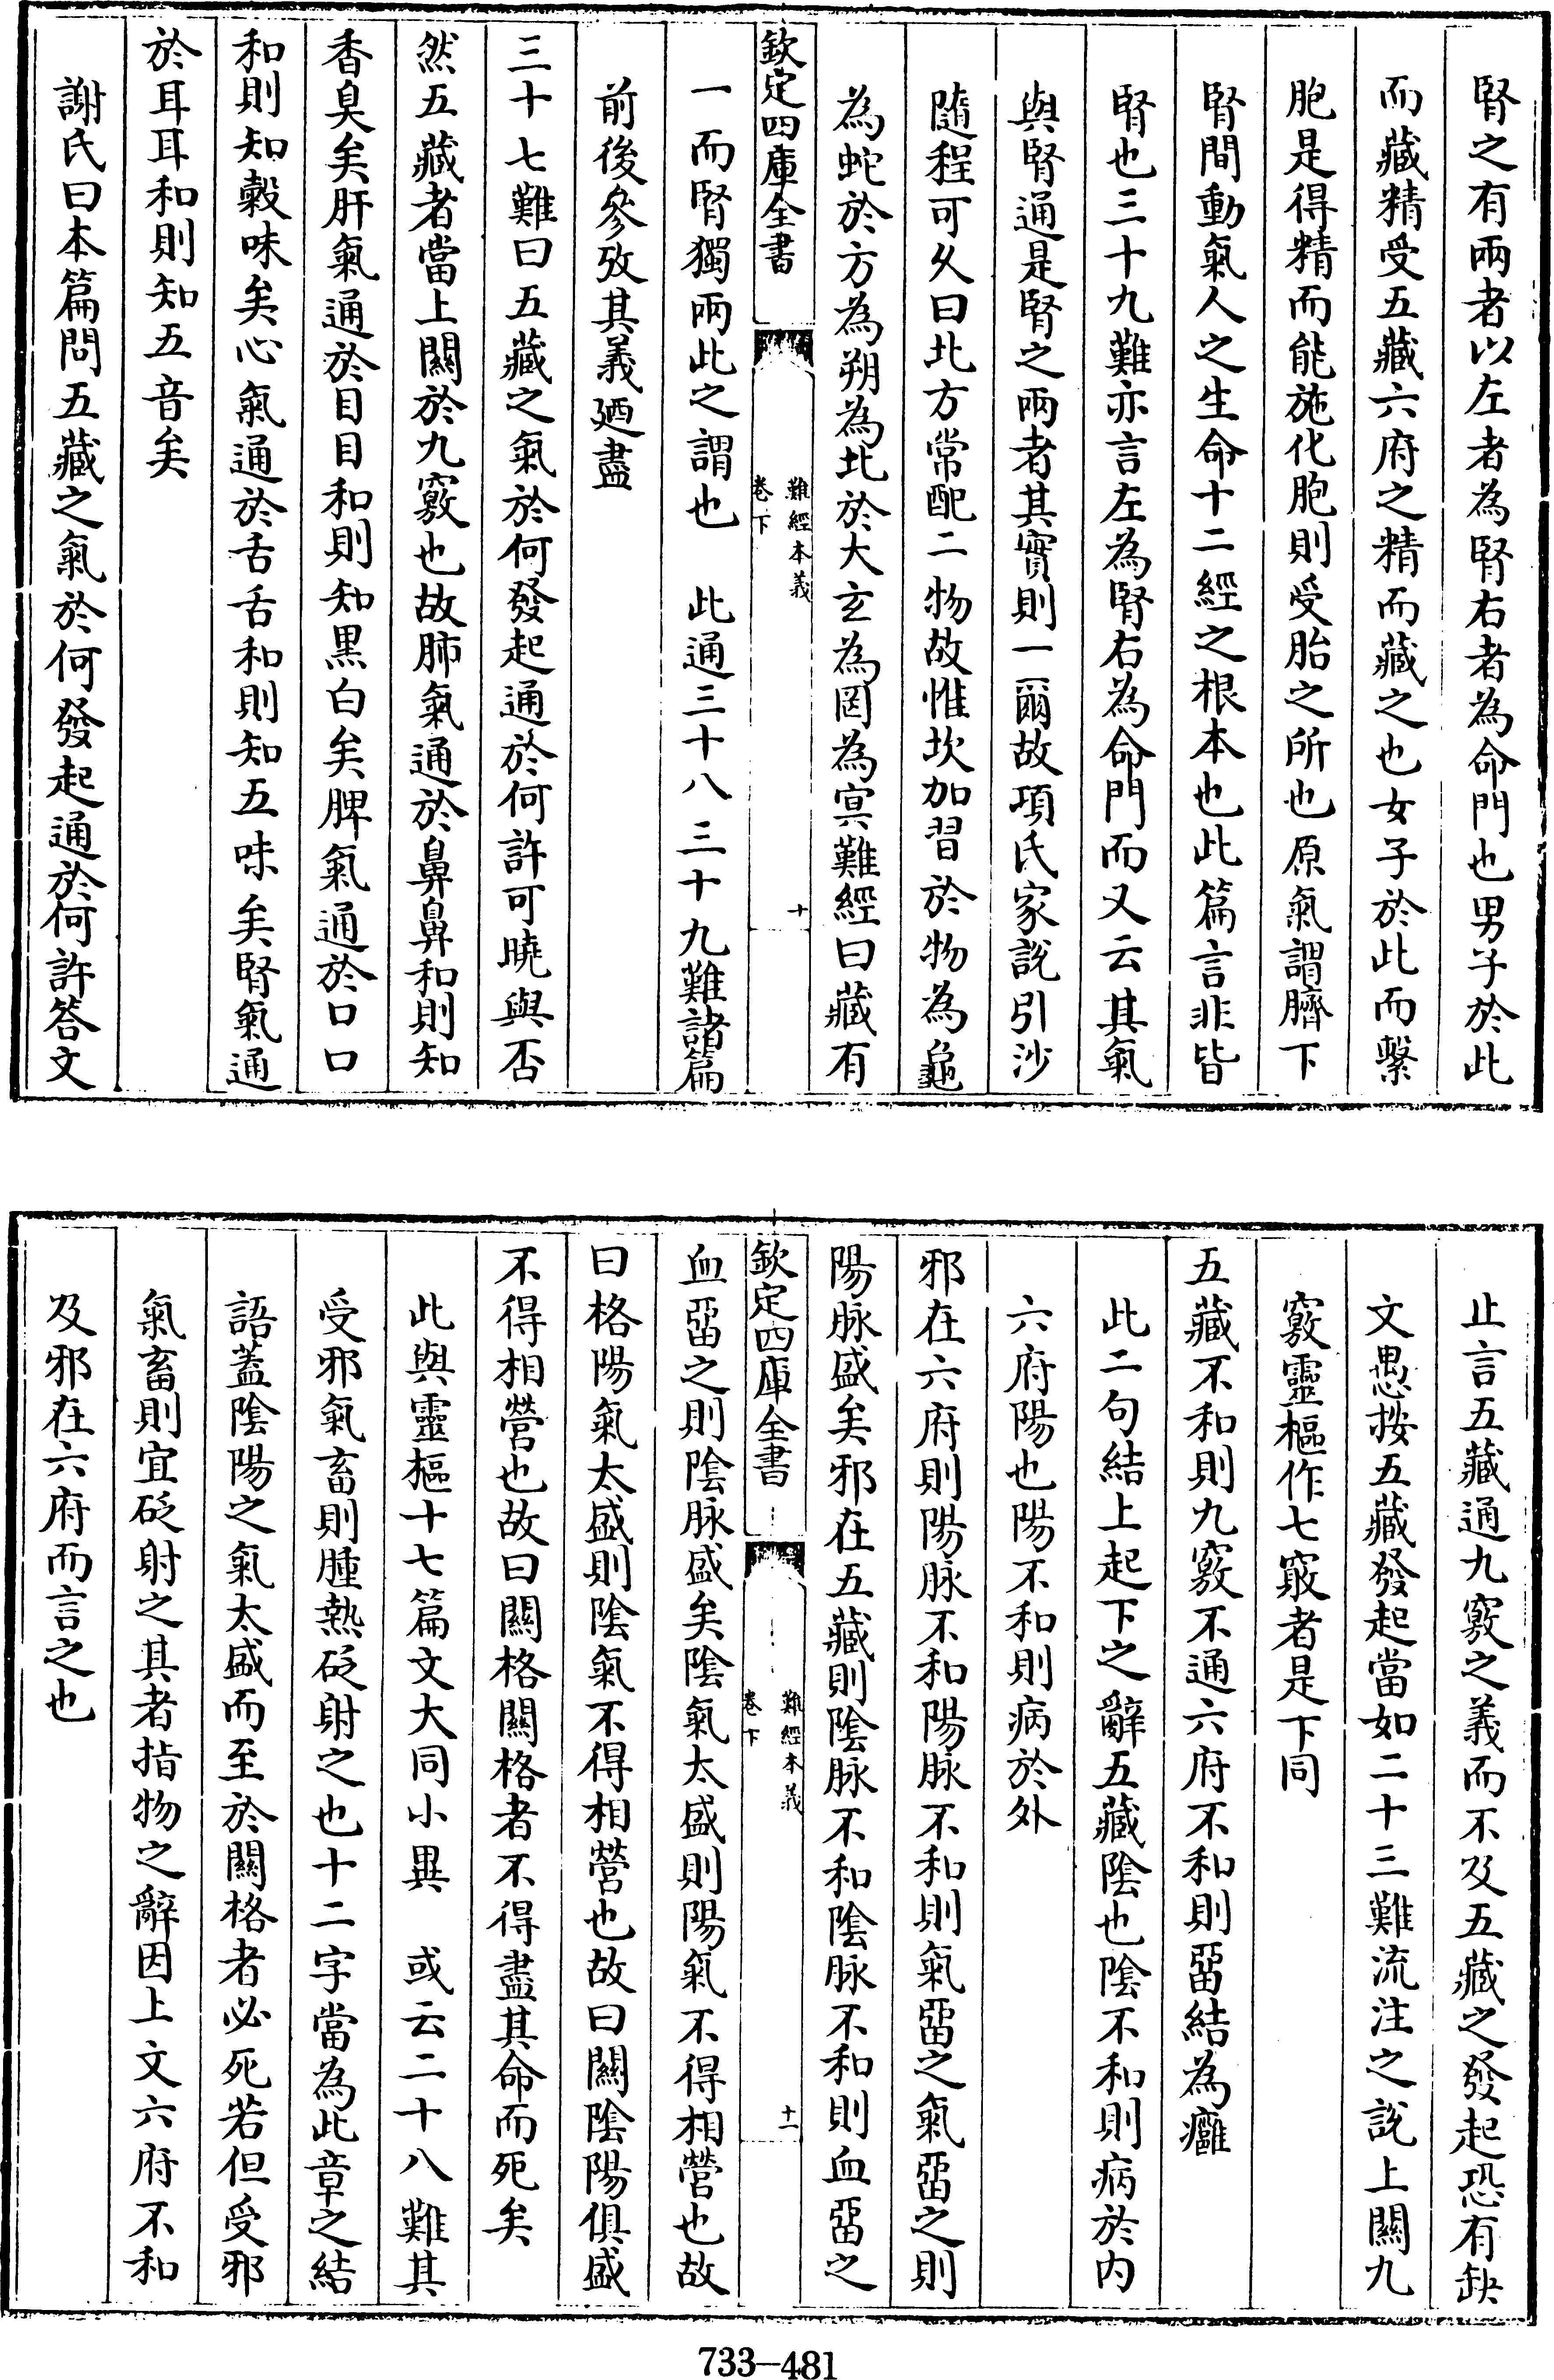 腎之有兩者以左者為腎右者為命門也男子於此
而藏精受五藏六府之精而藏之也女子於此而繫
胞是得精而能施化胞則受胎之所也原氣謂臍下
腎間動氣人之生命十二經之根本也此篇言非皆
腎也三十九難亦言左為腎右為命門而又云其氣
與腎通是腎之兩者其實則一爾故項氏家說引沙
隨程可久曰北方常配二物故惟坎加習於物為龜
為蛇於方為朔為北於大玄為罔為冥難經曰藏有
欽定四庫全書
難經本義
卷下
十
一而腎獨兩此之謂也　此通三十八三十九難諸篇
前後參攷其義廼盡
三十七難曰五藏之氣於何發起通於何許可曉與否
然五藏者當上關於九竅也故肺氣通於鼻鼻和則知
香臭矣肝氣通於目目和則知黑白矣脾氣通於口口
和則知穀味矣心氣通於舌舌和則知五味矣腎氣通
於耳耳和則知五音矣
謝氏曰本篇問五藏之氣於何發起通於何許答文
止言五藏通九竅之義而不及五藏之發起恐有缺
文愚按五藏發起當如二十三難流注之說上關九
竅靈樞作七竅者是下同
五藏不和則九竅不通六府不和則畱結為癰
此二句結上起下之辭五藏陰也陰不和則病於內
六府陽也陽不和則病於外
邪在六府則陽脉不和陽脉不和則氣畱之氣畱之則
陽脉盛矣邪在五藏則陰脉不和陰脉不和則血畱之
欽定四庫全書
難經本義
卷下
十一
血畱之則陰脉盛矣陰氣太盛則陽氣不得相營也故
曰格陽氣太盛則陰氣不得相營也故曰關陰陽俱盛
不得相營也故曰關格關格者不得盡其命而死矣
此與靈樞十七篇文大同小異　或云二十八難其
受邪氣畜則腫熱砭射之也十二字當為此章之結
語蓋陰陽之氣太盛而至於關格者必死若但受邪
氣畜則宜砭射之其者指物之辭因上文六府不和
及邪在六府而言之也
733-481